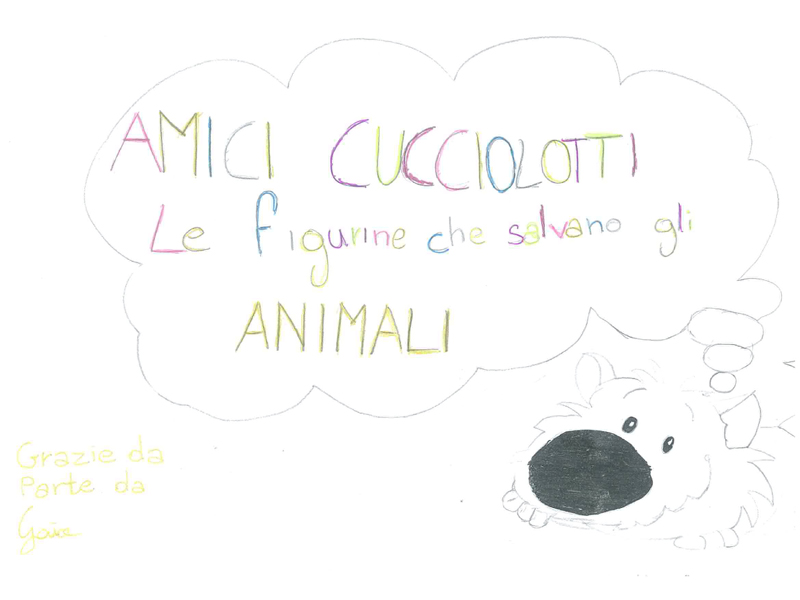 AMICI CUCCIOLOTTI
Le figurine che salvano gli
ANIMALI
Grazie da
Parte da